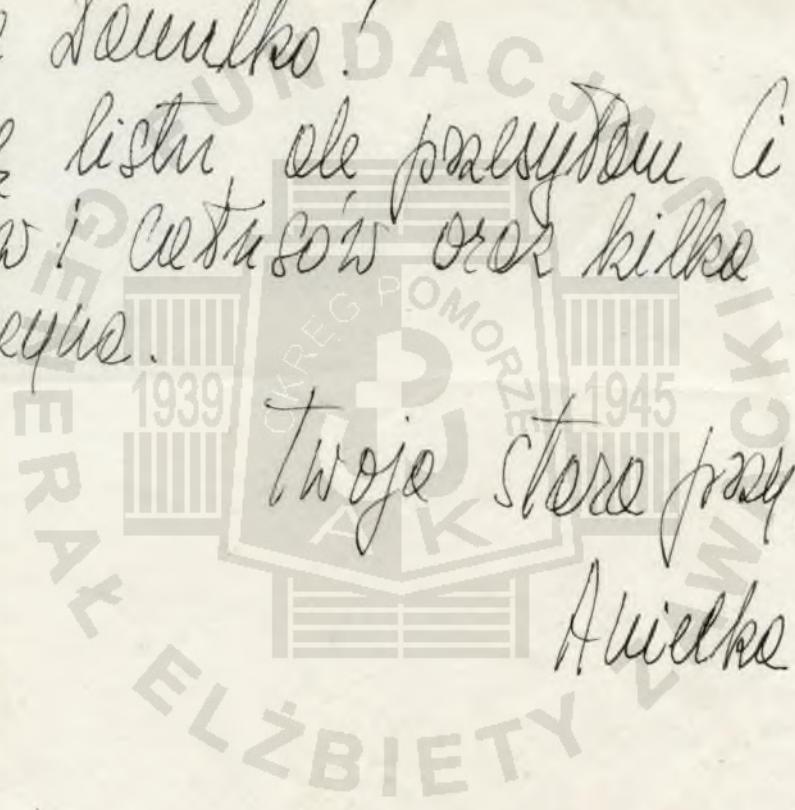 Danulko!
listu, ale przesyłam Ci
w i całusów oraz kilka
Twoja stara przy
Anielka
FUNDACJA
GENERAŁ ELŻBIETY ZAWACKIEJ
OKRĘG POMORZE
1939
1945
AK